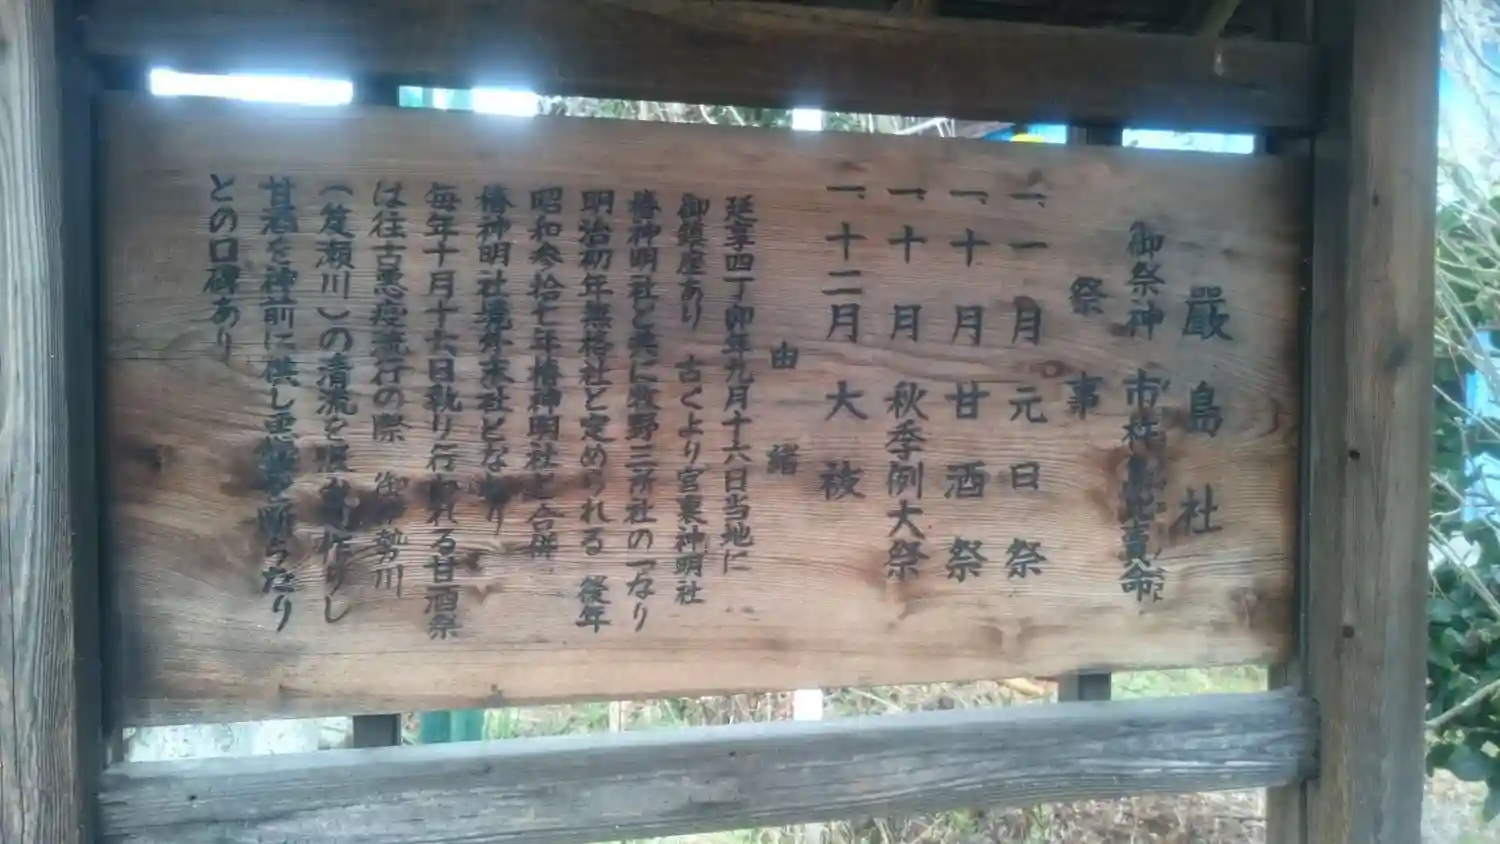 嚴島社
御祭神 市杵嶋比賣命
祭事
一、一月 元日祭
一、十月 甘酒祭
一、十月 秋季例大祭
一、十二月 大祓
由緒
延享四丁卯年九月十六日当地に
御鎮座あり 古くより宮東神明社
椿神明社と共に牧野三所社の一なり
明治初年無格社と定められる 後年
昭和参拾七年椿神明社と合併
椿神明社境外末社となあり
毎年十月十六日執り行われる甘酒祭
は往古悪疫流行の際 御伊勢川
(笈瀬川)の清流を汲み 作りし
甘酒を神前に供し悪 断ちたり
との口碑あり